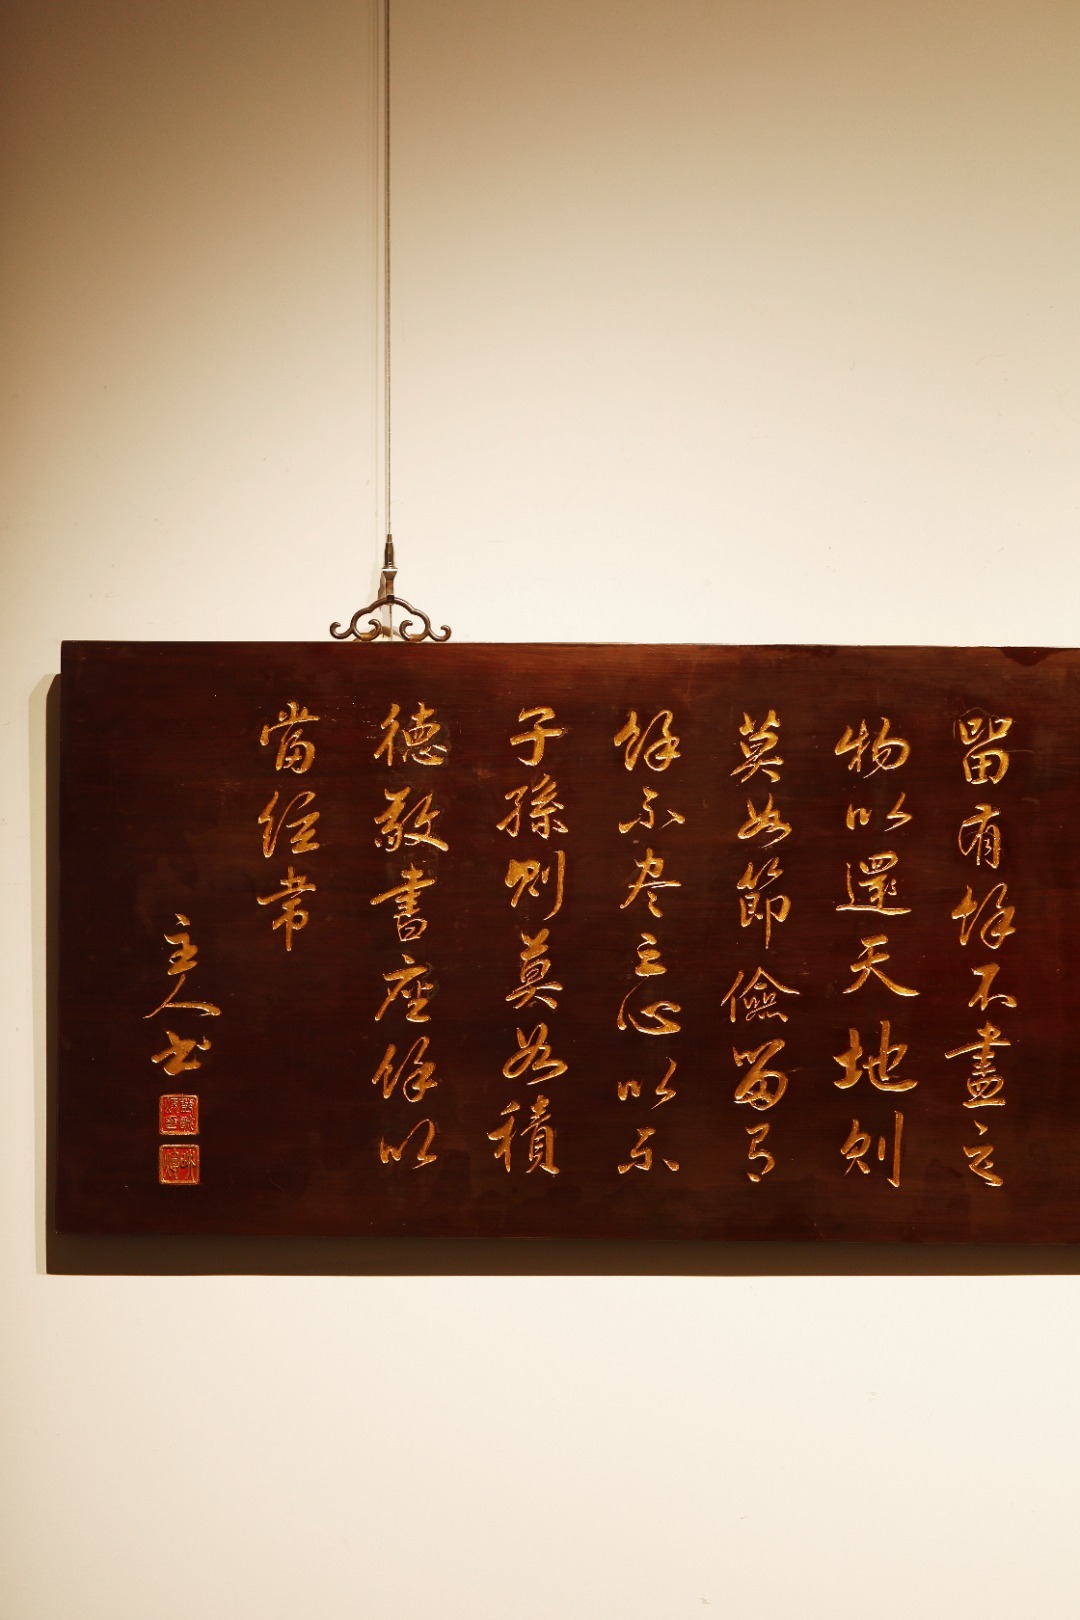 留有餘不盡之
物以還天地則
莫如節儉留有
餘不盡之心以示
子孫則莫如積
德敬書座餘以
當經常
主人書